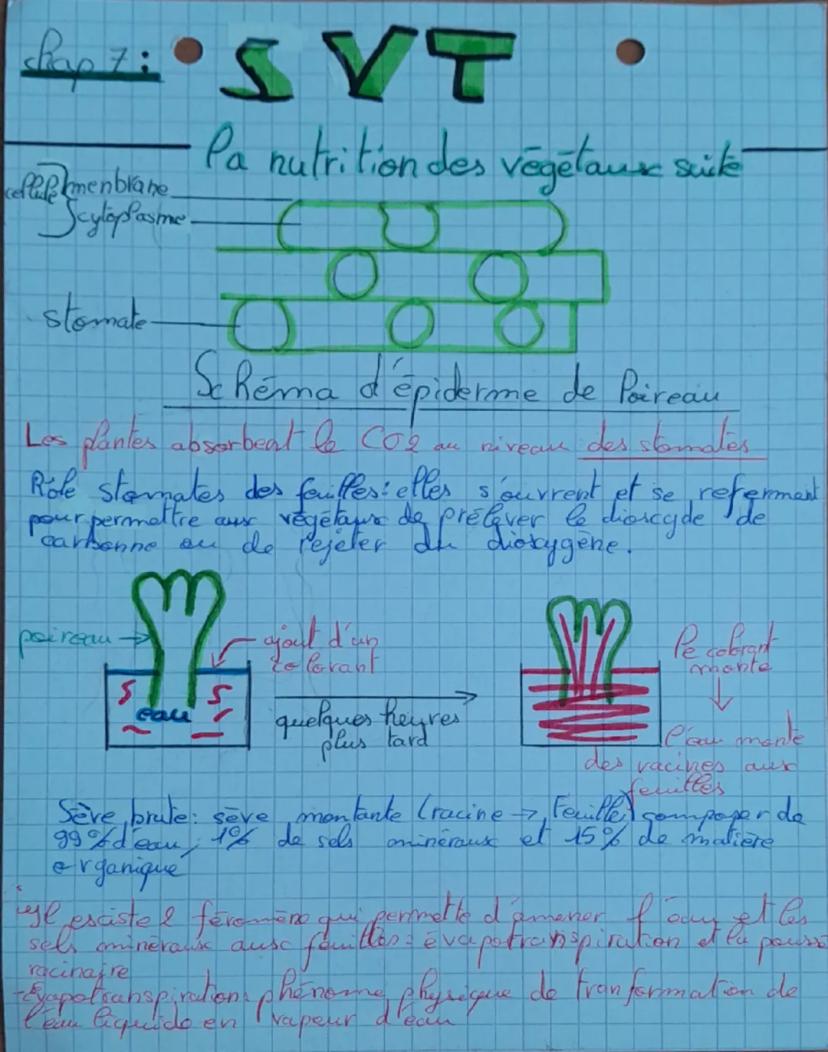 chap 7 :
SVT
La nutrition des végétaux suite
cellule
menbrane
cytoplasme
stomate
Schéma d'épiderme de Poireau
Les plantes absorbent le CO2 au niveau des stomates
Rôle stomates des feuilles : elles s'ouvrent et se referment
pour permettre aux végétaux de prélever le dioxyde de
carbonne ou de rejeter du dioxygène.
poireau
ajout d'un
colorant
eau
quelques heures
plus tard
le colorant
monte
l'eau monte
des racines aux
feuilles
Sève brute : sève montante (racine → Feuille) composer de
99% d'eau, 1% de sels minéraux et 15% de matière
organique
Il esciste 2 féromène qui permette d'amener l'eau et les
sels minéraux aux feuilles : évapotranspiration et la poussé
racinaire
- Evapotranspiration : phénome physique de tranformation de
l'eau liquide en vapeur d'eau